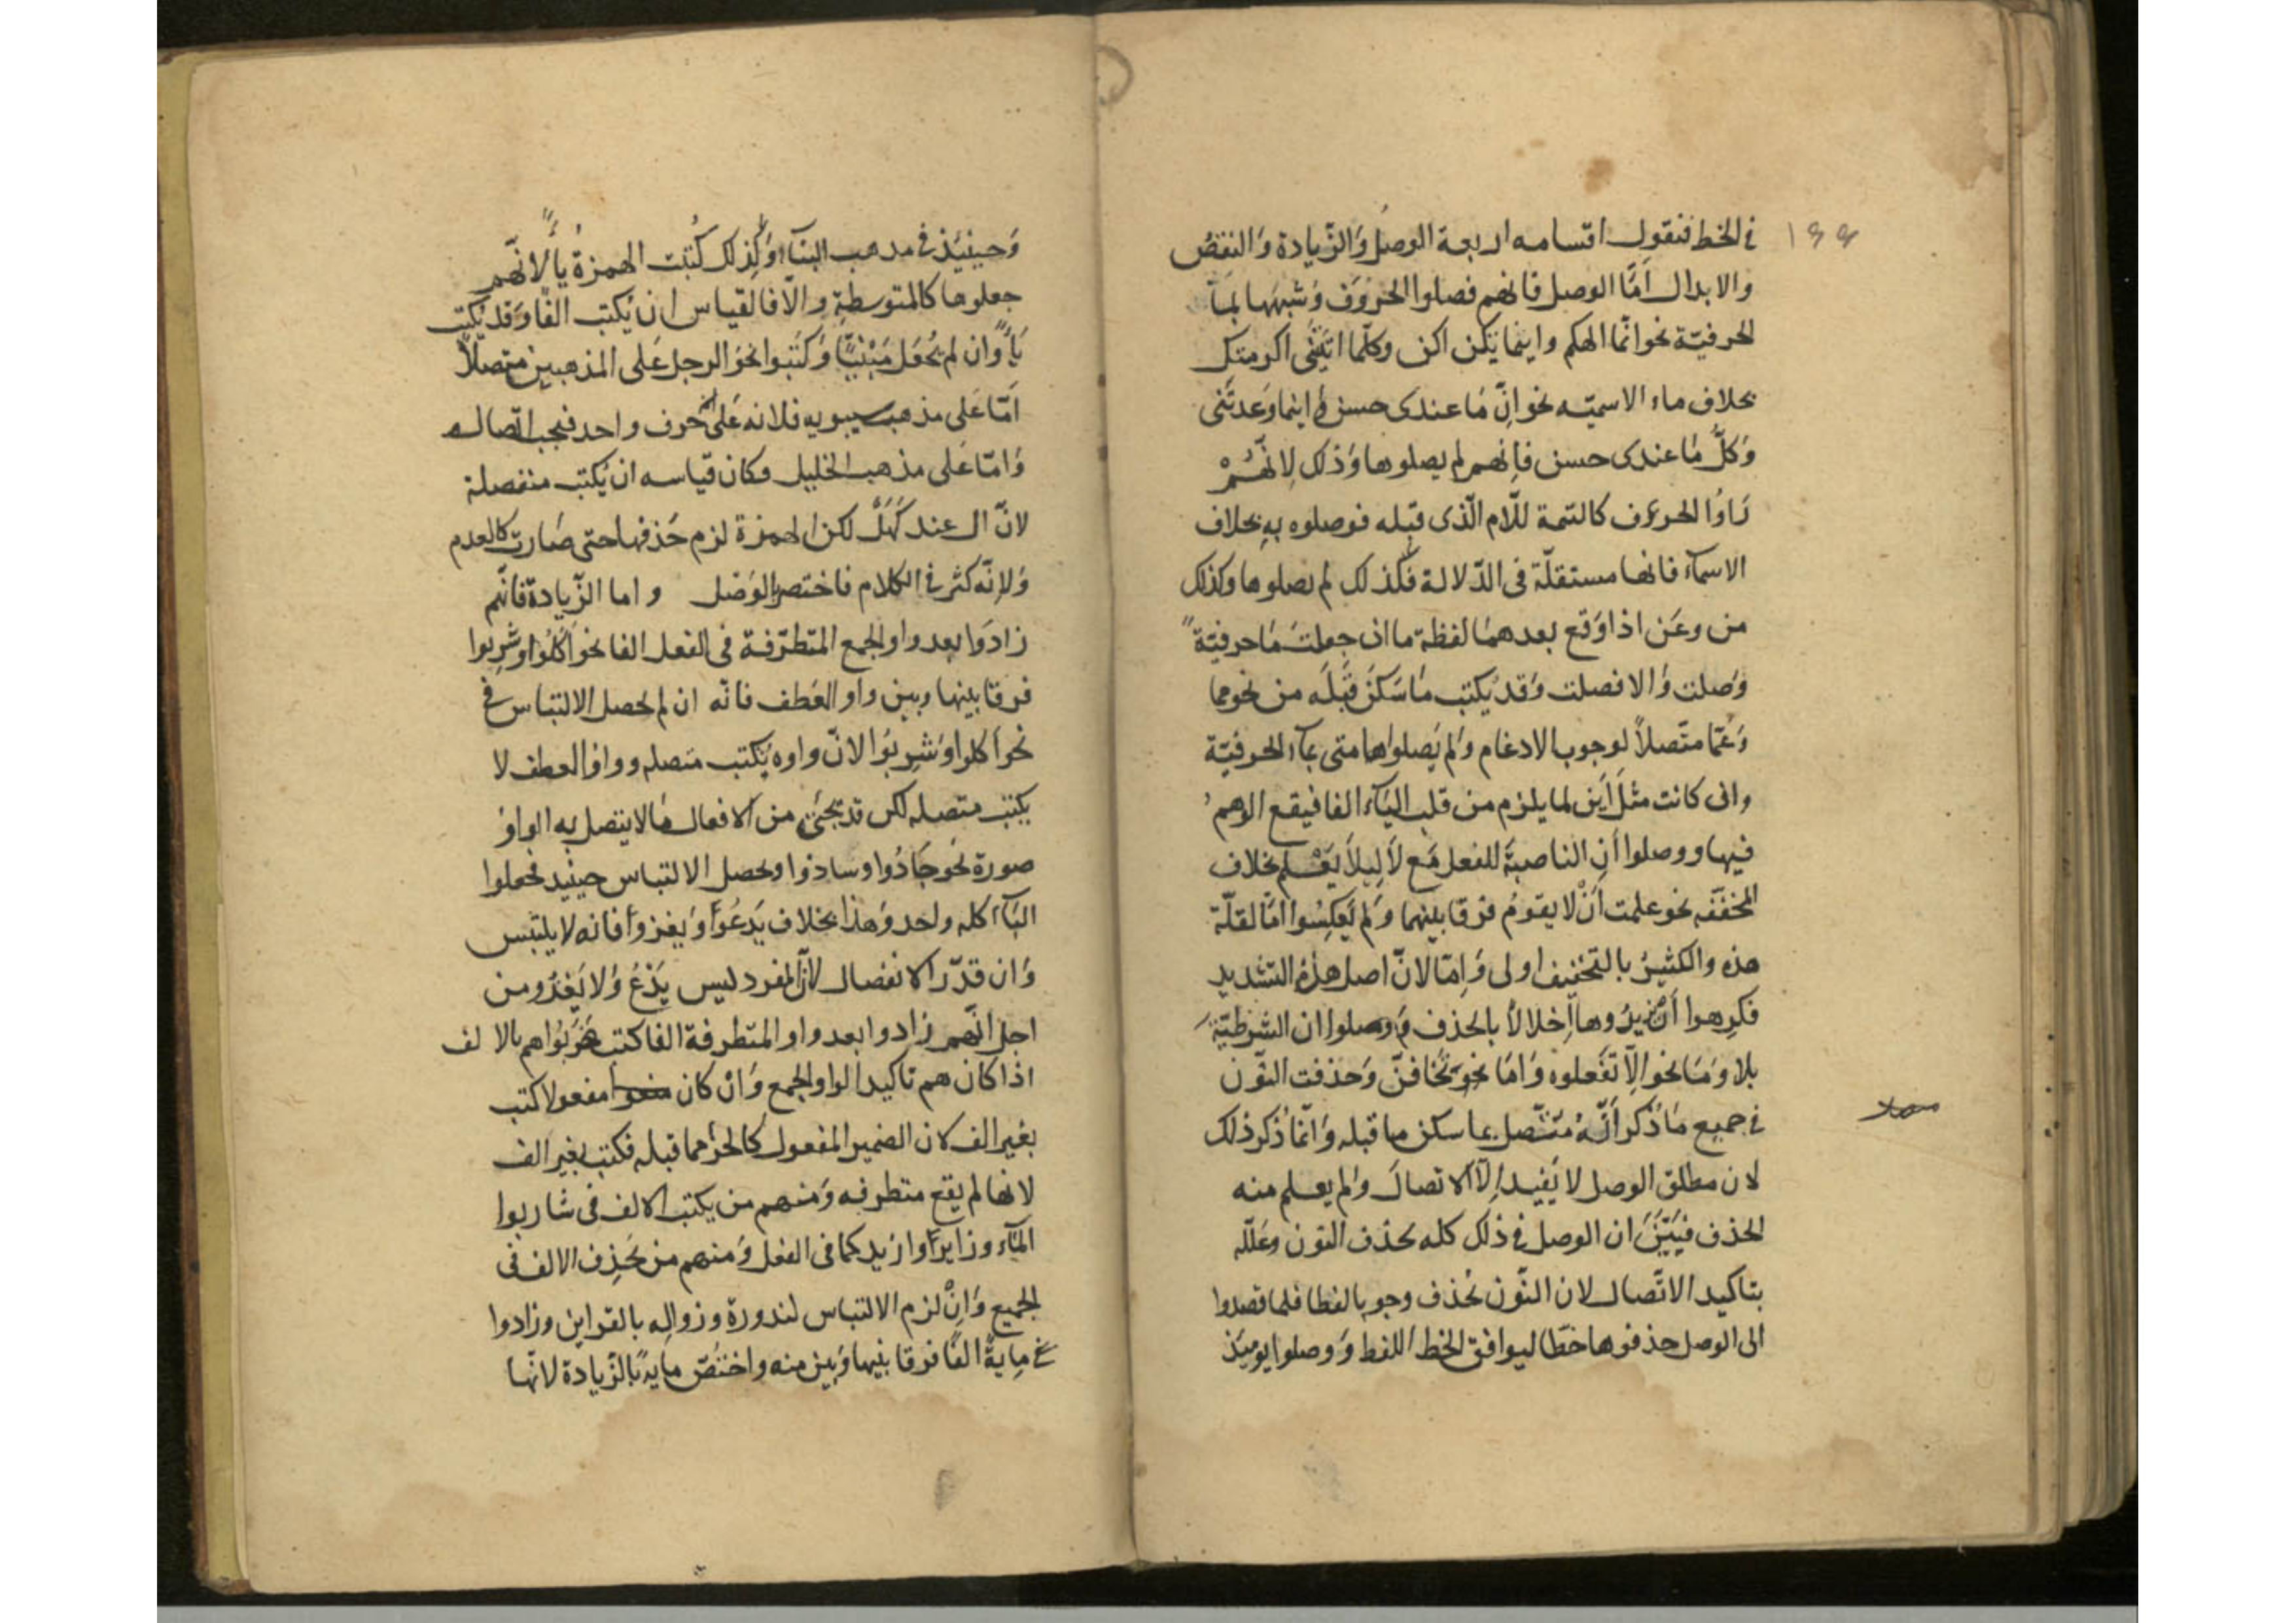 ١٩٩
في الخط فنقول اقسامه اربعة الوصل والزّيادة والنقص
والابدال امّا الوصل فانهم فصلوا الحروف وشبهها بما
الحرفيّة نحو انّما الهكم واينما تكن اكن وكلّما اتيتنى اكرمتك
بخلاف ماء الاسميّه نحو انّ ما عندى حسن واينما وعدتنى
وكلُّ ما عندى حسن فانهم لم يصلوها وذلك لانّهُمْ
رَاوُا الحروف كالتتمة للّام الّذى قبله فوصلوه به بخلاف
الاسمآء فانها مستقلّة فى الدّلالة فكذلك لم يصلوها وكذلك
من وعَن اذا وقع بعدهما لفظة ما ان جعلت ما حرفيّة
وصلت والا فصلت وقد يكتب ما سكن قبله من نحو مما
وعمّا متّصلاً لوجوب الادغام ولم يصلوا ها متى بمآء الحرفيّة
وانى كانت مثل اين لما يلزم من قلب اليآء الفا فيقع الوهم
فيها ووصلوا أن الناصبة للفعل مع لا لِيلا يَعْلم بخلاف
المخفّفه نحو علمت أنْ لا يقومُ فرقا بينهما ولم يعكسوا امّا لقلّة
هذه والكثيرُ بالتخفيف اولى وامّا لانّ اصل هذه التشديد
فكرهوا أن يزيدُوها اخلالاً بالحذف ووصلوا ان الشرطيّة
بلا وما نحو الّا تفعلوه وامّا نحو تخافنّ وحذفت النّون
في جميع ما ذُكر أنّهُ متّصل بما سكن ما قبله وانّما ذكر ذلك
لان مطلق الوصل لا يُفيد الّا الاتصال ولم يعلم منه
الحذف فبيّن ان الوصل في ذلك كله بحذف النّون وعلّله
بتاكيد الاتّصال لان النّون تحذف وجوبا لفظا فلما قصدوا
الى الوصل حذفوها خطّا ليوافق الخط اللفظ ووصلوا يوميَذ
وحينيَذ في مذهب البنآء ولذلك كُتبت الهمزة ياءً لانّهم
جعلوها كالمتوسطة والّا فالقياس ان يُكتب الفًا وقد يُكتب
ياءً وان لم يُجعل مبنيًّا وكتبوا نحو الرجل على المذهبين متصلاً
امّا على مذهب سيبويه فلانه على حرف واحد فيجب اتّصاله
وامّا على مذهب الخليل فكان قياسه ان يُكتب منفصلة
لانّ ال عنده كهَلْ لكن الهمزة لزم حذفها حتى صارت كالعدم
ولانّه كثر في الكلام فاختصر بالوَصْل واما الزّيادة فانّهم
زادوا بعد واو الجمع المتطرّفة فى الفعل الفا نحو أكلُوا وشربوا
فرقا بينها وبين واو العطف فانّه ان لم يحصل الالتباس فى
نحو اكلوا وشربوا لانّ واوه يُكتب متصله وواو العطف لا
يكتب متصله لكن قد يجئ من الافعال ما لا يتصل به الواو
صورة نحو جَادُوا وسادوا ويحصل الالتباس حينيد فجعلوا
الباب كله واحد وهذا بخلاف يَدعُو ويغزو فانه لا يلتبس
وان قدّر الانفصال لانّ المفرد ليس يَدْعُ ولا يَغْزُ ومن
اجل انّهم زادوا بعد واو المتطرفة الفا كتب ضربُوا هم بالالف
اذا كان هم تاكيدا لواو الجمع وان كان مفعولا كتب
بغير الف لان الضمير المفعول كالجزء مما قبله فكتب بغير الف
لانها لم يقع متطرفه ومنهم من يكتب الالف فى شاربوا
المآء وزايروا زيد كما فى الفعل ومنهم من يحذف الالف فى
الجميع وانْ لزم الالتباس لندورة وزواله بالقراين وزادوا
فى مِايةٍ الفًا فرقا بينها وبين منه واختصّ ماية بالزّيادة لانّها